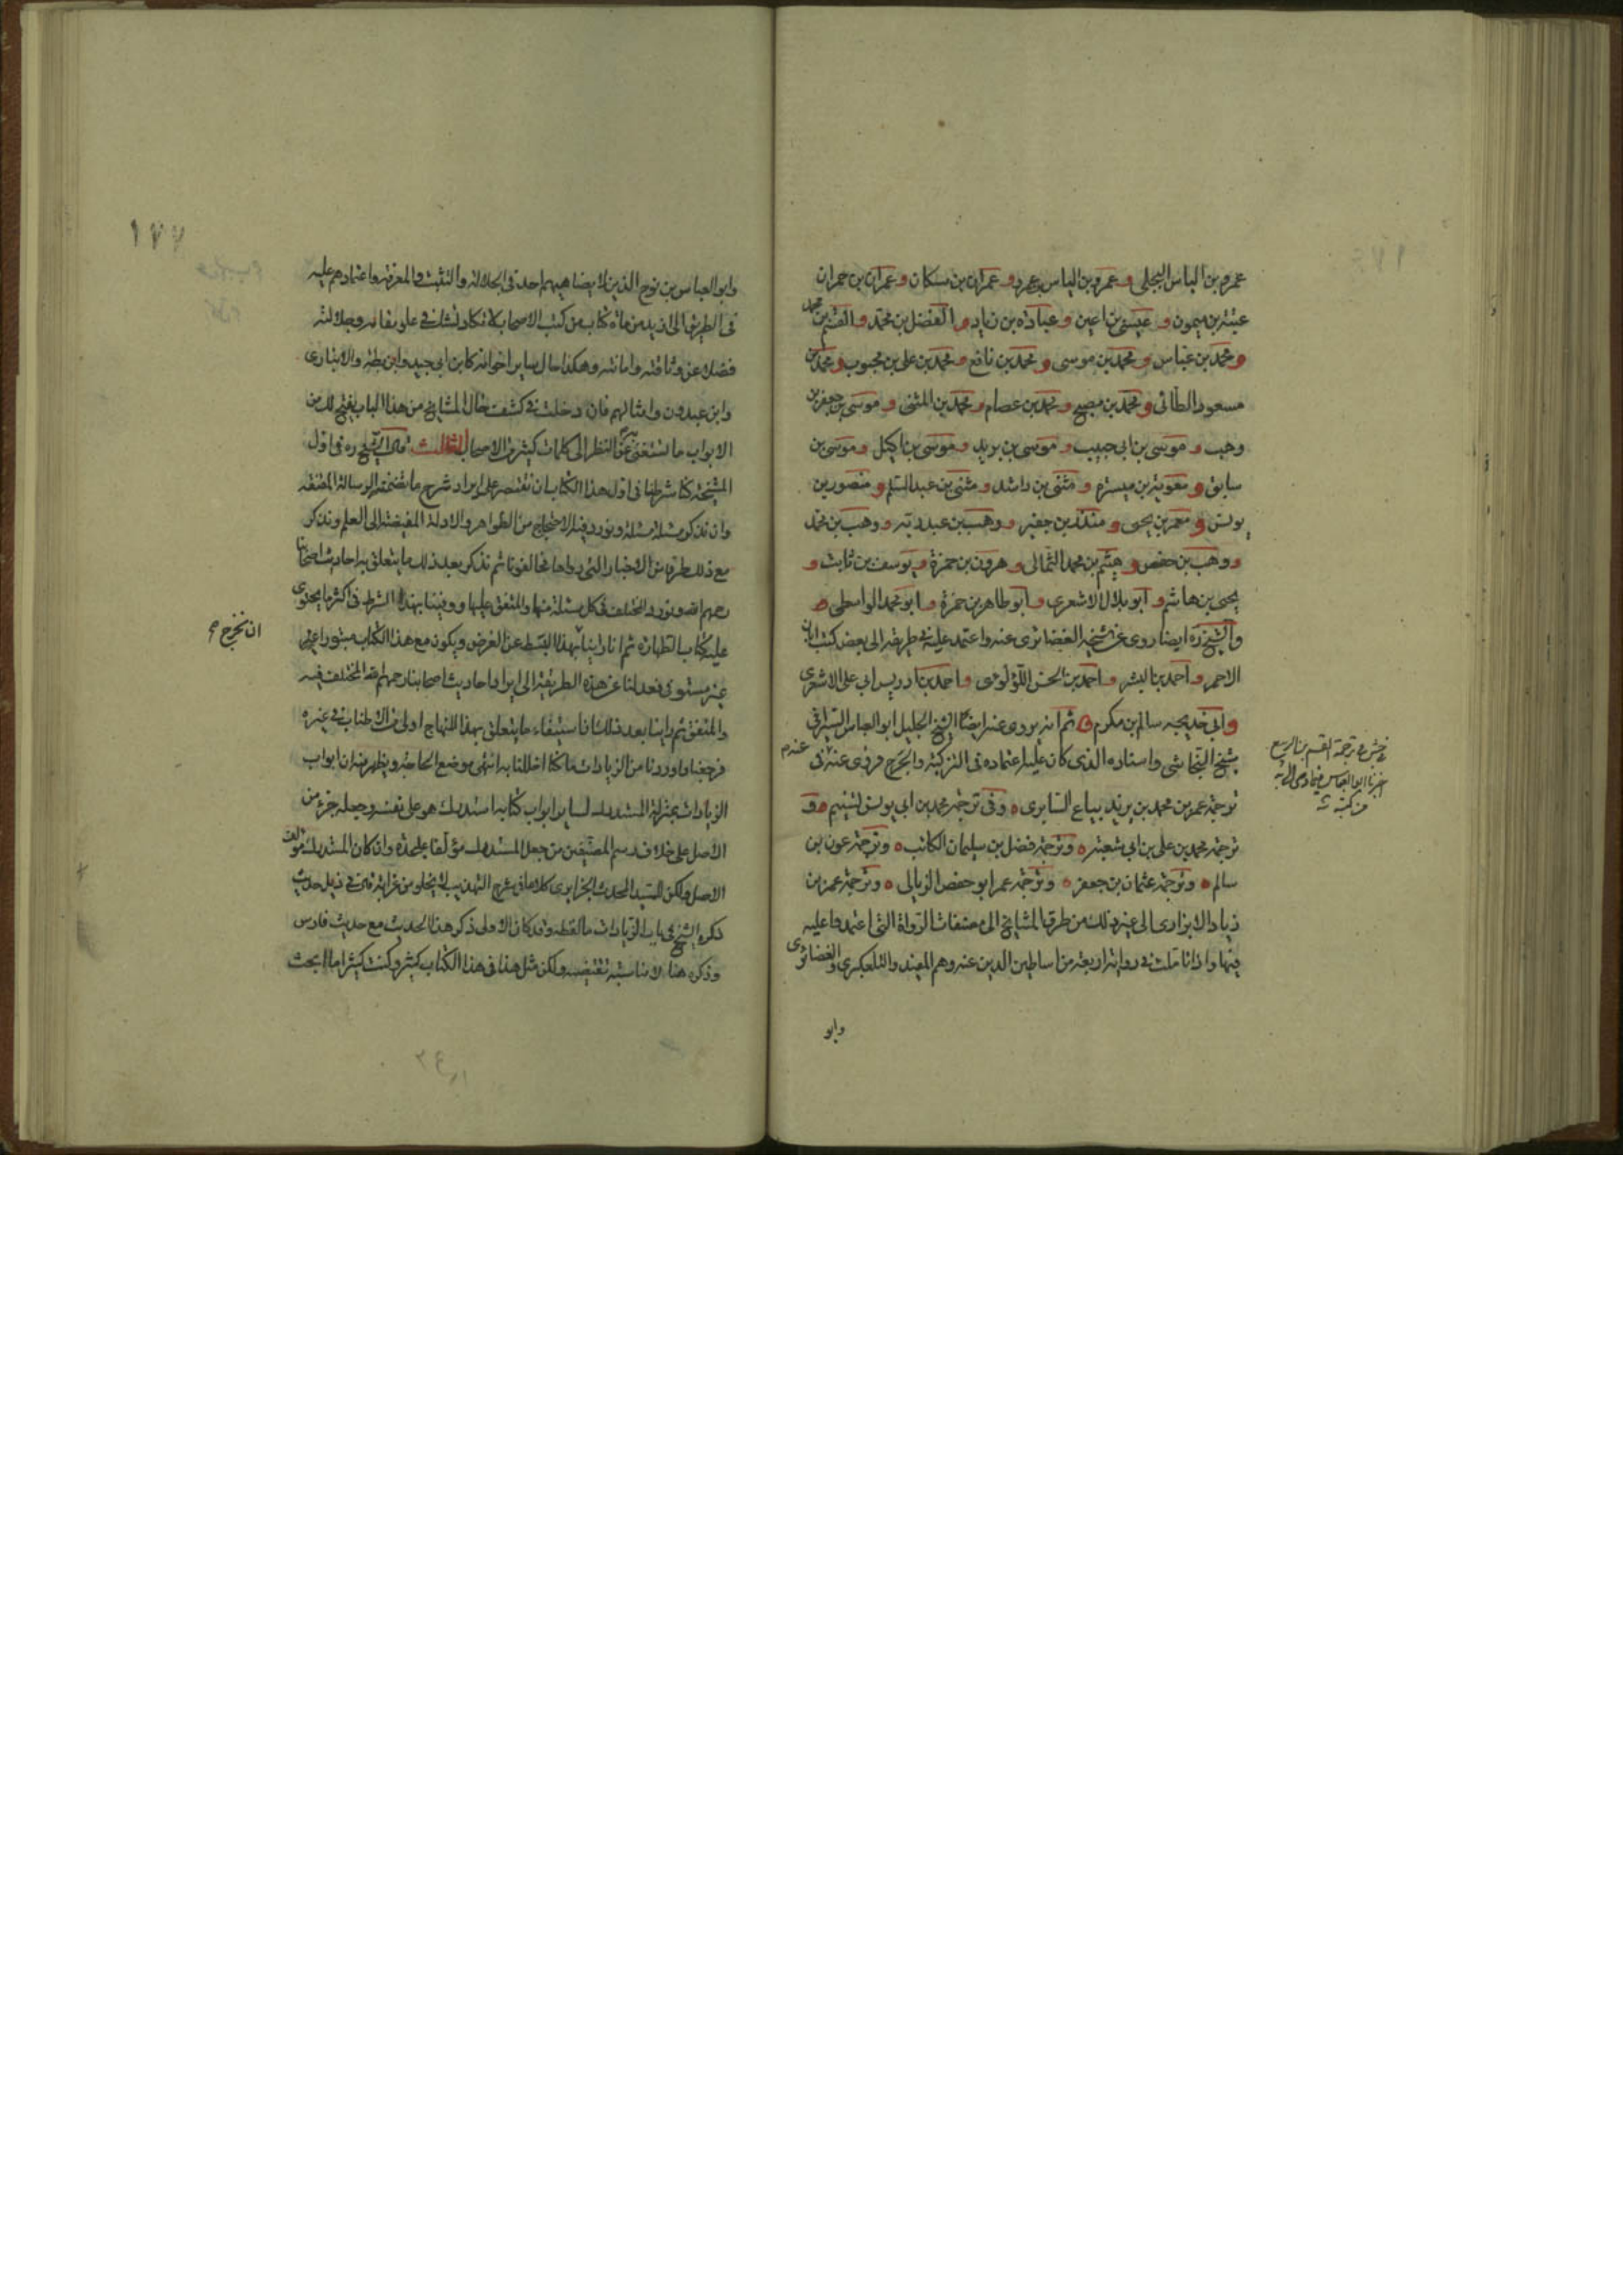 عمرو بن الیاس البجلی و عمرو بن الیاس بن عمرو و عمران بن مسکان و عمران بن حمران
عیینة بن میمون و عیسی بن اعین و عبادة بن زیاد و الفضل بن محمد و القسم بن محمد
و محمد بن عباس و محمد بن موسی و محمد بن نافع و محمد بن علی بن محبوب و محمد بن
مسعود الطائی و محمد بن مصبح و محمد بن عصام و محمد بن المثنی و موسی بن جعفر بن
وهب و موسی بن ابی حبیب و موسی بن برید و موسی بن اکیل و موسی بن
سابق و معویة بن میسرة و مثنی بن راشد و مثنی بن عبد السلم و منصور بن
یونس و معمر بن یحیی و منذر بن جفیر و وهب بن عبد ربه و وهب بن محمد
و وهب بن حفص و هیثم بن محمد الثمالی و هرون بن حمزة و یوسف بن ثابت و
یحیی بن هاشم و ابو بلال الاشعری و ابو طاهر بن حمزة و ابو محمد الواسطی
والشیخ ره ایضا روی عن شیخه الغضائری عنه واعتمد علیه فی طریقه الی بعض کتب ابان
الاحمر و احمد بن البشر و احمد بن الحسن اللؤلؤی و احمد بن ادریس ابی علی الاشعری
و ابی خدیجه سالم بن مکرم ثم انه یروی عنه ایضا الشیخ الجلیل ابو العباس السیرافی
شیخ النجاشی واستاده الذی کان علیه اعتماده فی التزکیة والجرح فروی عنه فی
ترجمة عمر بن محمد بن یزید بیاع السابری وفی ترجمة محمد بن ابی یونس تسنیم و
ترجمة محمد بن علی بن ابی شعبة وترجمة فضل بن سلیمان الکاتب وترجمة عون بن
سالم وترجمة عثمان بن جعفر وترجمة عمر ابو حفص الزبالی وترجمة عمر بن
زیاد الابزاری الی غیر ذلک من طرق المشایخ الی مصنفات الرواة التی اعتمدوا علیه
فیها واذا تاملت فی روایة اربعة من اساطین الدین عنه وهم المفید والتلعکبری والغضائری
وابو
عنه م
فی ترجمة القسم بن الربیع
اخبرنا ابو العباس
من کتبه
١٧٧
وابو العباس بن نوح الذین لا یضاهیهم احد فی الجلالة والتثبت والمعرفة واعتمادهم علیه
فی الطریق الی ازید من مائة کتاب من کتب الاصحاب لا تکاد تشک فی علو مقامه وجلالته
فضلا عن وثاقته وامانته وهکذا حال سایر اخوانه کابن ابی جید وابن بطة والانباری
وابن عبدون وامثالهم فان دخلت فی کشف حال المشایخ من هذا الباب یفتح لک من
الابواب ما تستغنی به عن النظر الی کلمات کثیر من الاصحاب الثالث قال الشیخ ره فی اول
المشیخة کنا شرطنا فی اول هذا الکتاب ان نقتصر علی ایراد شرح ما تضمنته الرسالة المقنعة
وان نذکر مسئلة مسئلة ونورد فیها الاحتجاج من الظواهر والادلة المفضیة الی العلم ونذکر
مع ذلک طرفا من الاخبار التی رواها مخالفونا ثم نذکر بعد ذلک ما یتعلق به احادیث اصحابنا
رحمهم الله ونورد المختلف فی کل مسئلة منها والمتفق علیها ووفینا بهذا الشرط فی اکثر ما یحتوی
علیه کتاب الطهارة ثم انا راینا بهذا البسط عن الغرض ویکون مع هذا الکتاب مبتورا
غیر مستوفی فعدلنا عن هذه الطریقة الی ایراد احادیث اصحابنا رحمهم الله المختلف فیه
والمتفق ثم راینا بعد ذلک ان استیفاء ما یتعلق بهذا المنهاج اولی من الاطناب فی غیره
فرجعنا واوردنا من الزیادات ما کنا اخللنا به انتهی موضع الحاجة ویظهر منه ان ابواب
الزیادات بمنزلة المستدرک لسایر ابواب کتابه استدرک هو علی نفسه وجعله جزء من
الاصل علی خلاف رسم المصنفین من جعل المستدرک مؤلفا علی حدة وان کان المستدرک مؤلف
الاصل ولکن للسید المحدث الجزایری کلاما فی شرح التهذیب لا یخلو من غرابة قال فی ذیل حدیث
ذکره الشیخ فی باب الزیادات ما لفظه وقد کان الاولی ذکر هذا الحدیث مع حدیث فارس
وذکره هنا لا مناسبة تقتضیه ولکن مثل هذا فی هذا الکتاب کثیر وکنت کثیرا ما ابحث
ان نخرج